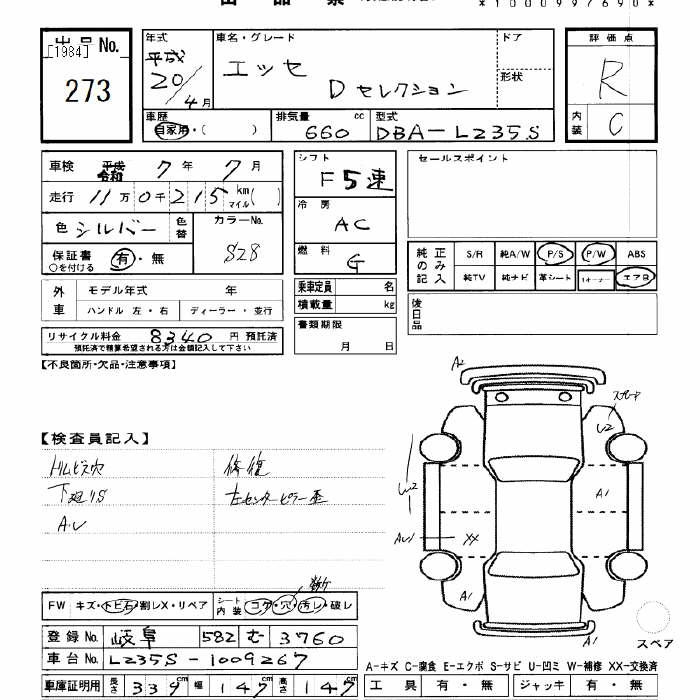 出品No. [1984]
273
年式 平成 20/4月
車名・グレード エッセ Dセレクション
ドア
形状
評価点 R
内装 C
車歴 自家用・( )
排気量 660 cc
型式 DBA-L235S
車検 平成 令和 7年 7月
走行 11万0千215km マイル( )
色 シルバー 色替
カラーNo. S28
保証書 有・無
○を付ける
外車 モデル年式 年
ハンドル 左・右 ディーラー・並行
リサイクル料金 8340 円 預託済
預託済で精算希望される方は金額記入して下さい
シフト F5速
冷房 AC
燃料 G
乗車定員 名
積載量 kg
書類期限
月 日
セールスポイント
純正のみ記入 S/R 純A/W P/S P/W ABS
純TV 純ナビ 革シート 1オーナー エアB
後日品
【不良箇所・欠品・注意事項】
【検査員記入】
トリムビス穴 修復
下廻りS 左センターピラー歪
A・U
A2
スペア
U2
A1
XX
A1
A1
FW キズ・トビ石・割レX・リペア
シート内装 コゲ・穴・汚レ・破レ
登録No. 岐阜 582 む 3760
車台No. L235S-1009267
車庫証明用 長さ 339cm 幅 147 高さ 147
スペア
A-キズ C-腐食 E-エクボ S-サビ U-凹ミ W-補修 XX-交換済
工具 有・無 ジャッキ 有・無